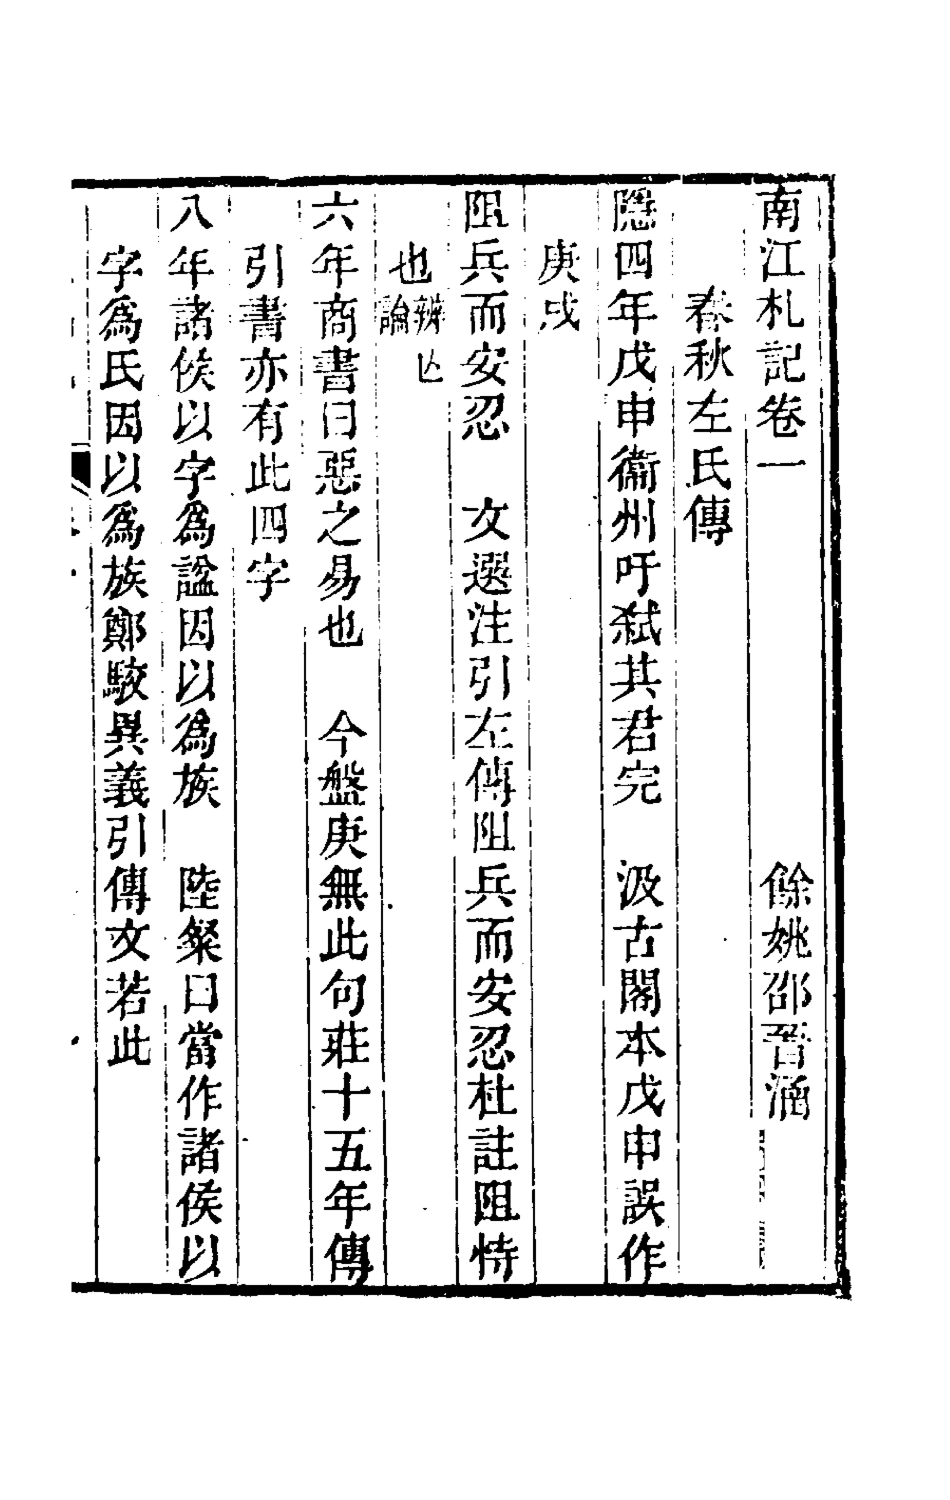 南江札記卷一　餘姚邵晋涵
春秋左氏傳
隱四年戊申衞州吁弑其君完　汲古閣本戊申誤作
庚戌
阻兵而安忍　文選注引左傳阻兵而安忍杜註阻恃
也辨亾論
六年商書曰惡之易也　今盤庚無此句莊十五年傳
引書亦有此四字
八年諸侯以字爲諡因以爲族　陸粲曰當作諸侯以
字爲氏因以爲族鄭駮異義引傳文若此